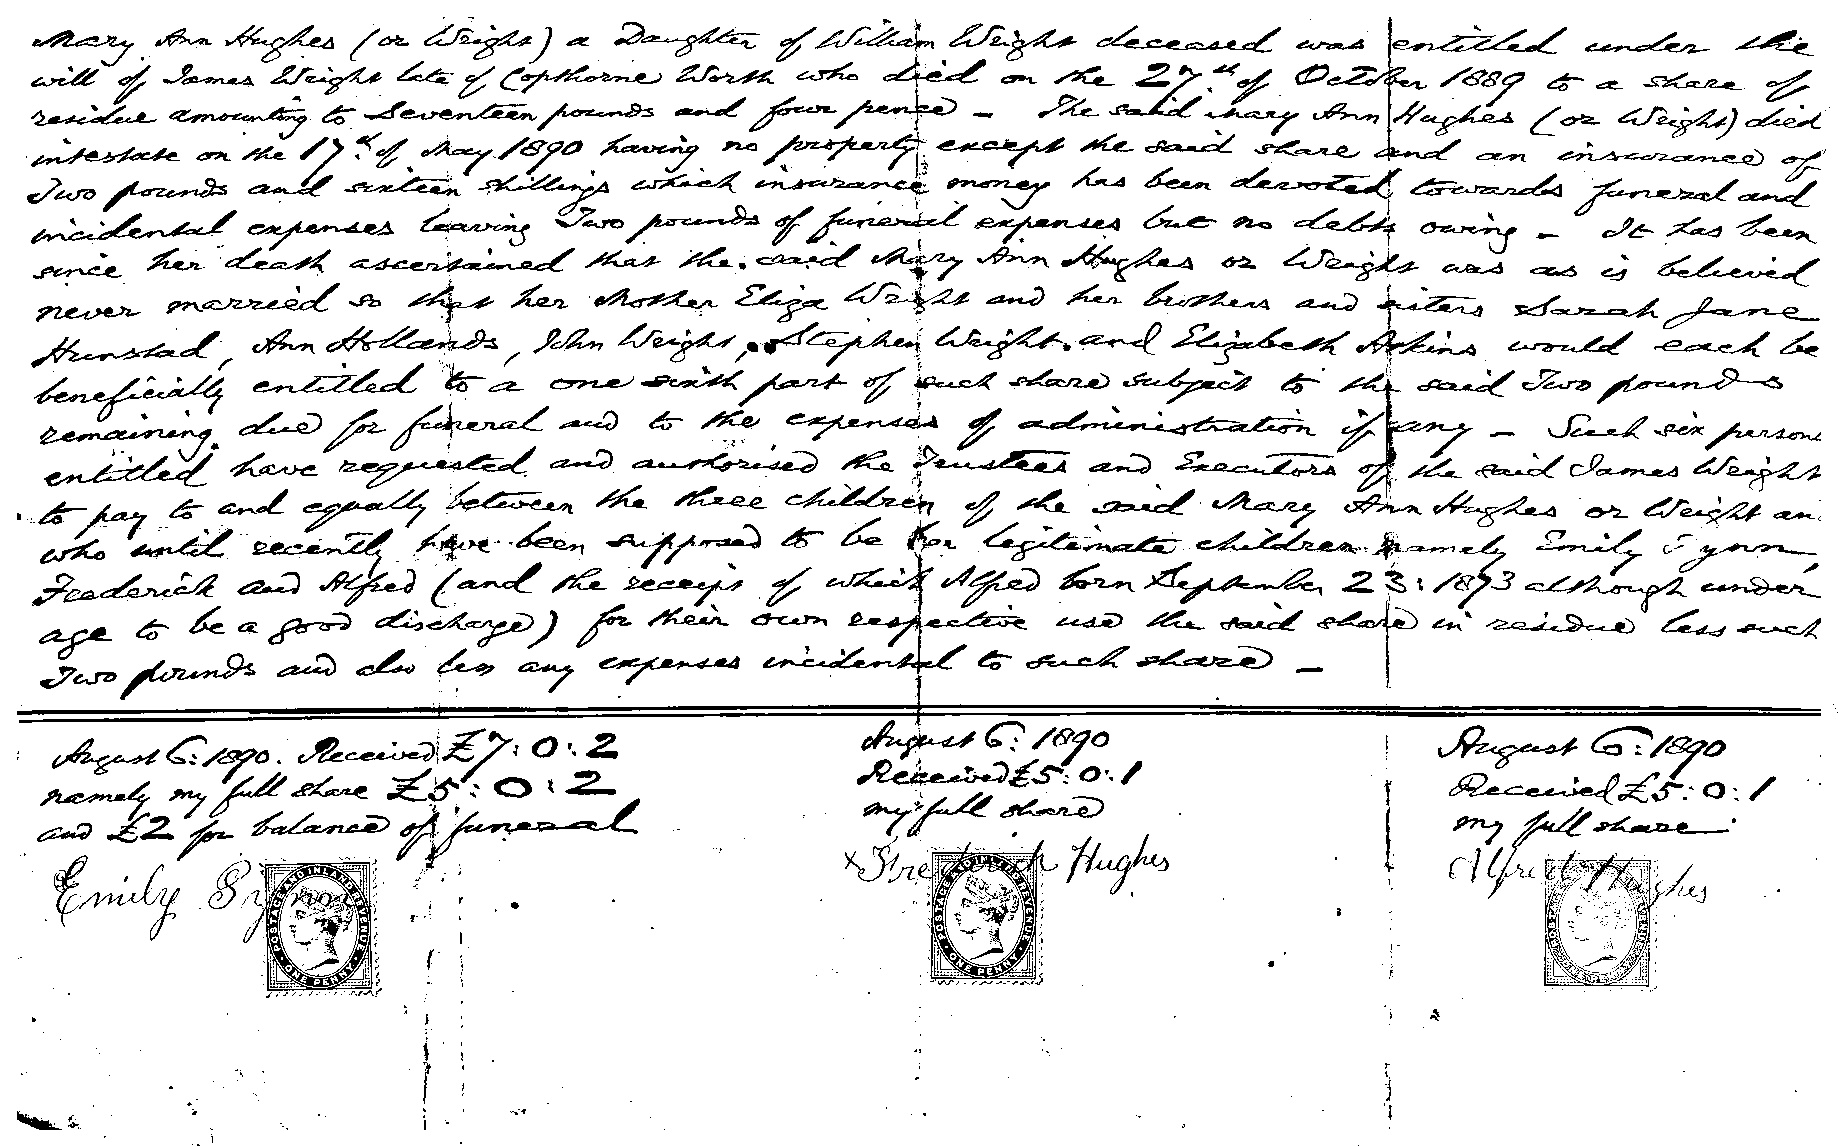 Mary Ann Hughes (or Wright) a Daughter of William Wright deceased was entitled under the
will of James Wright late of Copthorne Worth who died on the 27th of October 1889 to a share of
residue amounting to Seventeen pounds and four pence — The said Mary Ann Hughes (or Wright) died
intestate on the 17th of May 1890 having no property except the said share and an insurance of
Two pounds and sixteen shillings which insurance money has been devoted towards funeral and
incidental expenses leaving Two pounds of funeral expenses but no debts owing — It has been
since her death ascertained that the said Mary Ann Hughes or Wright was as is believed
never married so that her Mother Eliza Wright and her brothers and sisters Sarah Jane
Hunstad, Ann Hollands, John Wright, Stephen Wright and Elizabeth Askins would each be
beneficially entitled to a one sixth part of such share subject to the said Two pounds
remaining due for funeral and to the expenses of administration if any — Such six persons
entitled have requested and authorised the Trustees and Executors of the said James Wright
to pay to and equally between the three children of the said Mary Ann Hughes or Wright an
who until recently have been supposed to be her legitimate children namely Emily Pynn,
Frederick and Alfred (and the receipt of which Alfred born September 23: 1873 although under
age to be a good discharge) for their own respective use the said share in residue less such
Two pounds and also less any expenses incidental to such share —
August 6: 1890. Received £7:0:2
namely my full share £5:0:2
and £2 for balance of funeral
Emily Pynn
POSTAGE AND INLAND REVENUE
ONE PENNY
August 6: 1890
Received £5:0:1
my full share
x Frederick Hughes
POSTAGE AND INLAND REVENUE
ONE PENNY
August 6: 1890
Received £5:0:1
my full share
Alfred Hughes